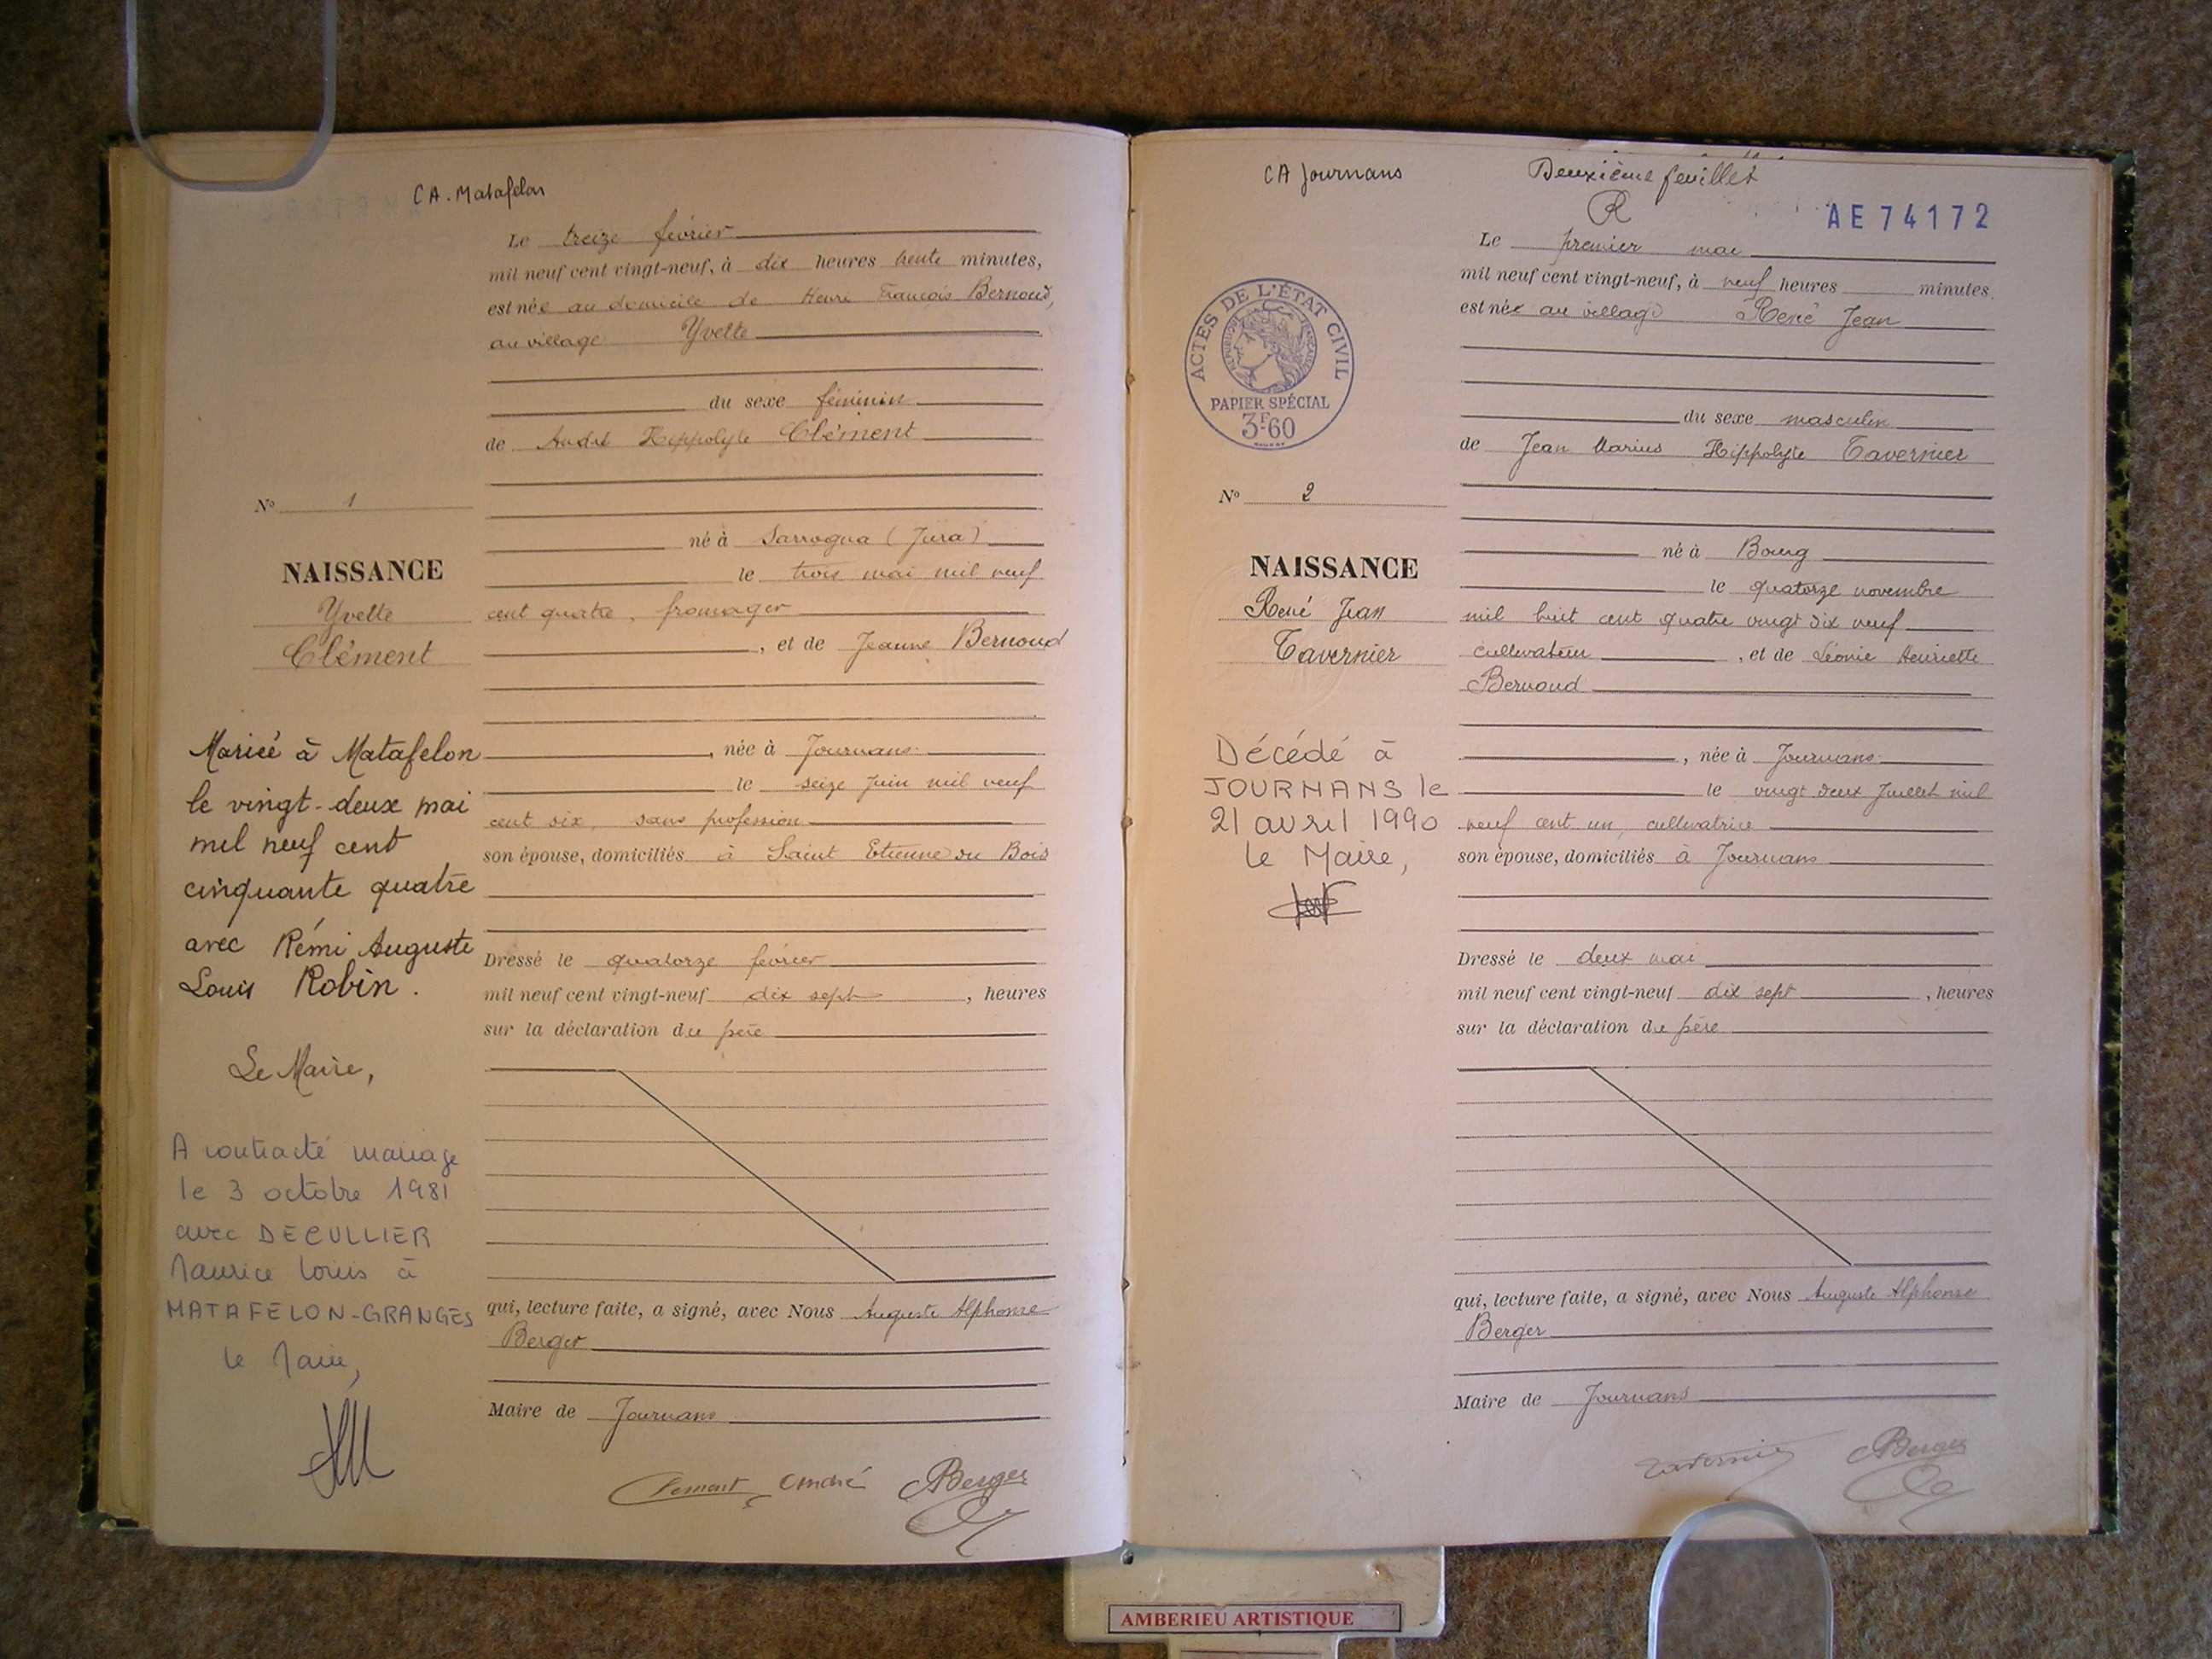 CA. Matafelon
Le treize février
mil neuf cent vingt-neuf, à dix heures trente minutes,
est née au domicile de Henri François Bernoud,
au village Yvette
du sexe féminin
de André Hippolyte Clément
N° 1
né à Sarrogna (Jura)
NAISSANCE
le trois mai mil neuf
Yvette
cent quatre, fromager
Clément
, et de Jeanne Bernoud
, née à Journans
le seize juin mil neuf
cent six, sans profession
son épouse, domiciliés à Saint Etienne du Bois
Dressé le quatorze février
mil neuf cent vingt-neuf dix sept , heures
sur la déclaration du père
qui, lecture faite, a signé, avec Nous Auguste Alphonse
Berger
Maire de Journans
Clément André Berger
Mariée à Matafelon
le vingt-deux mai
mil neuf cent
cinquante quatre
avec Rémi Auguste
Louis Robin.
Le Maire,
A contracté mariage
le 3 octobre 1981
avec DECULLIER
Maurice Louis à
MATAFELON-GRANGES
le Maire,
CA Journans
Deuxième feuillet
R
AE74172
Le premier mai
mil neuf cent vingt-neuf, à neuf heures minutes
est né au village René Jean
ACTES DE L'ÉTAT CIVIL
RÉPUBLIQUE FRANÇAISE
PAPIER SPÉCIAL
3F60
du sexe masculin
de Jean Marius Hippolyte Tavernier
N° 2
né à Bourg
NAISSANCE
le quatorze novembre
René Jean
mil huit cent quatre vingt dix neuf
Tavernier
cultivateur , et de Léonie Henriette
Bernoud
, née à Journans
le vingt deux Juillet mil
neuf cent un, cultivatrice
son épouse, domiciliés à Journans
Dressé le deux mai
mil neuf cent vingt-neuf dix sept , heures
sur la déclaration du père
qui, lecture faite, a signé, avec Nous Auguste Alphonse
Berger
Maire de Journans
Tavernier Berger
Décédé à
JOURNANS le
21 avril 1990
le Maire,
AMBERIEU ARTISTIQUE